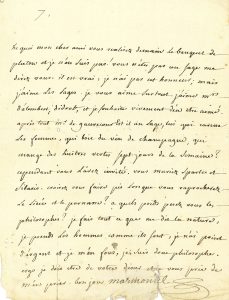 7.
quoi mon cher ami vous traitez demain le banquet de
platon et je n'en suis pas. vous n'êtes pas un sage me
direz vous. il est vrai, je n'ai pas cet honneur; mais
j'aime les sages, je vous aime surtout, j'aime mr
d'alembert, diderot, et je souhaite vivement d'en être aimé.
après tout mr de est un sage, lui qui
les femmes, qui boit du vin de champagne, qui
mange des huitres vertes sept jours de la semaine?
cependant vous l'avez invité, vous mariez Sparte et
Sibaris. croiez vous faire pis lorsque vous rapprocherez
le Licée et le parnasse? a quels poids pesez vous les
philosophes? je fais tout ce que me dit la nature,
je prends les hommes comme ils sont, je n'ai point
d'argent et je m'en fous, je suis donc philosophe.
ergo je dois être de votre diner et vous prie de
mon bon jour marmontel